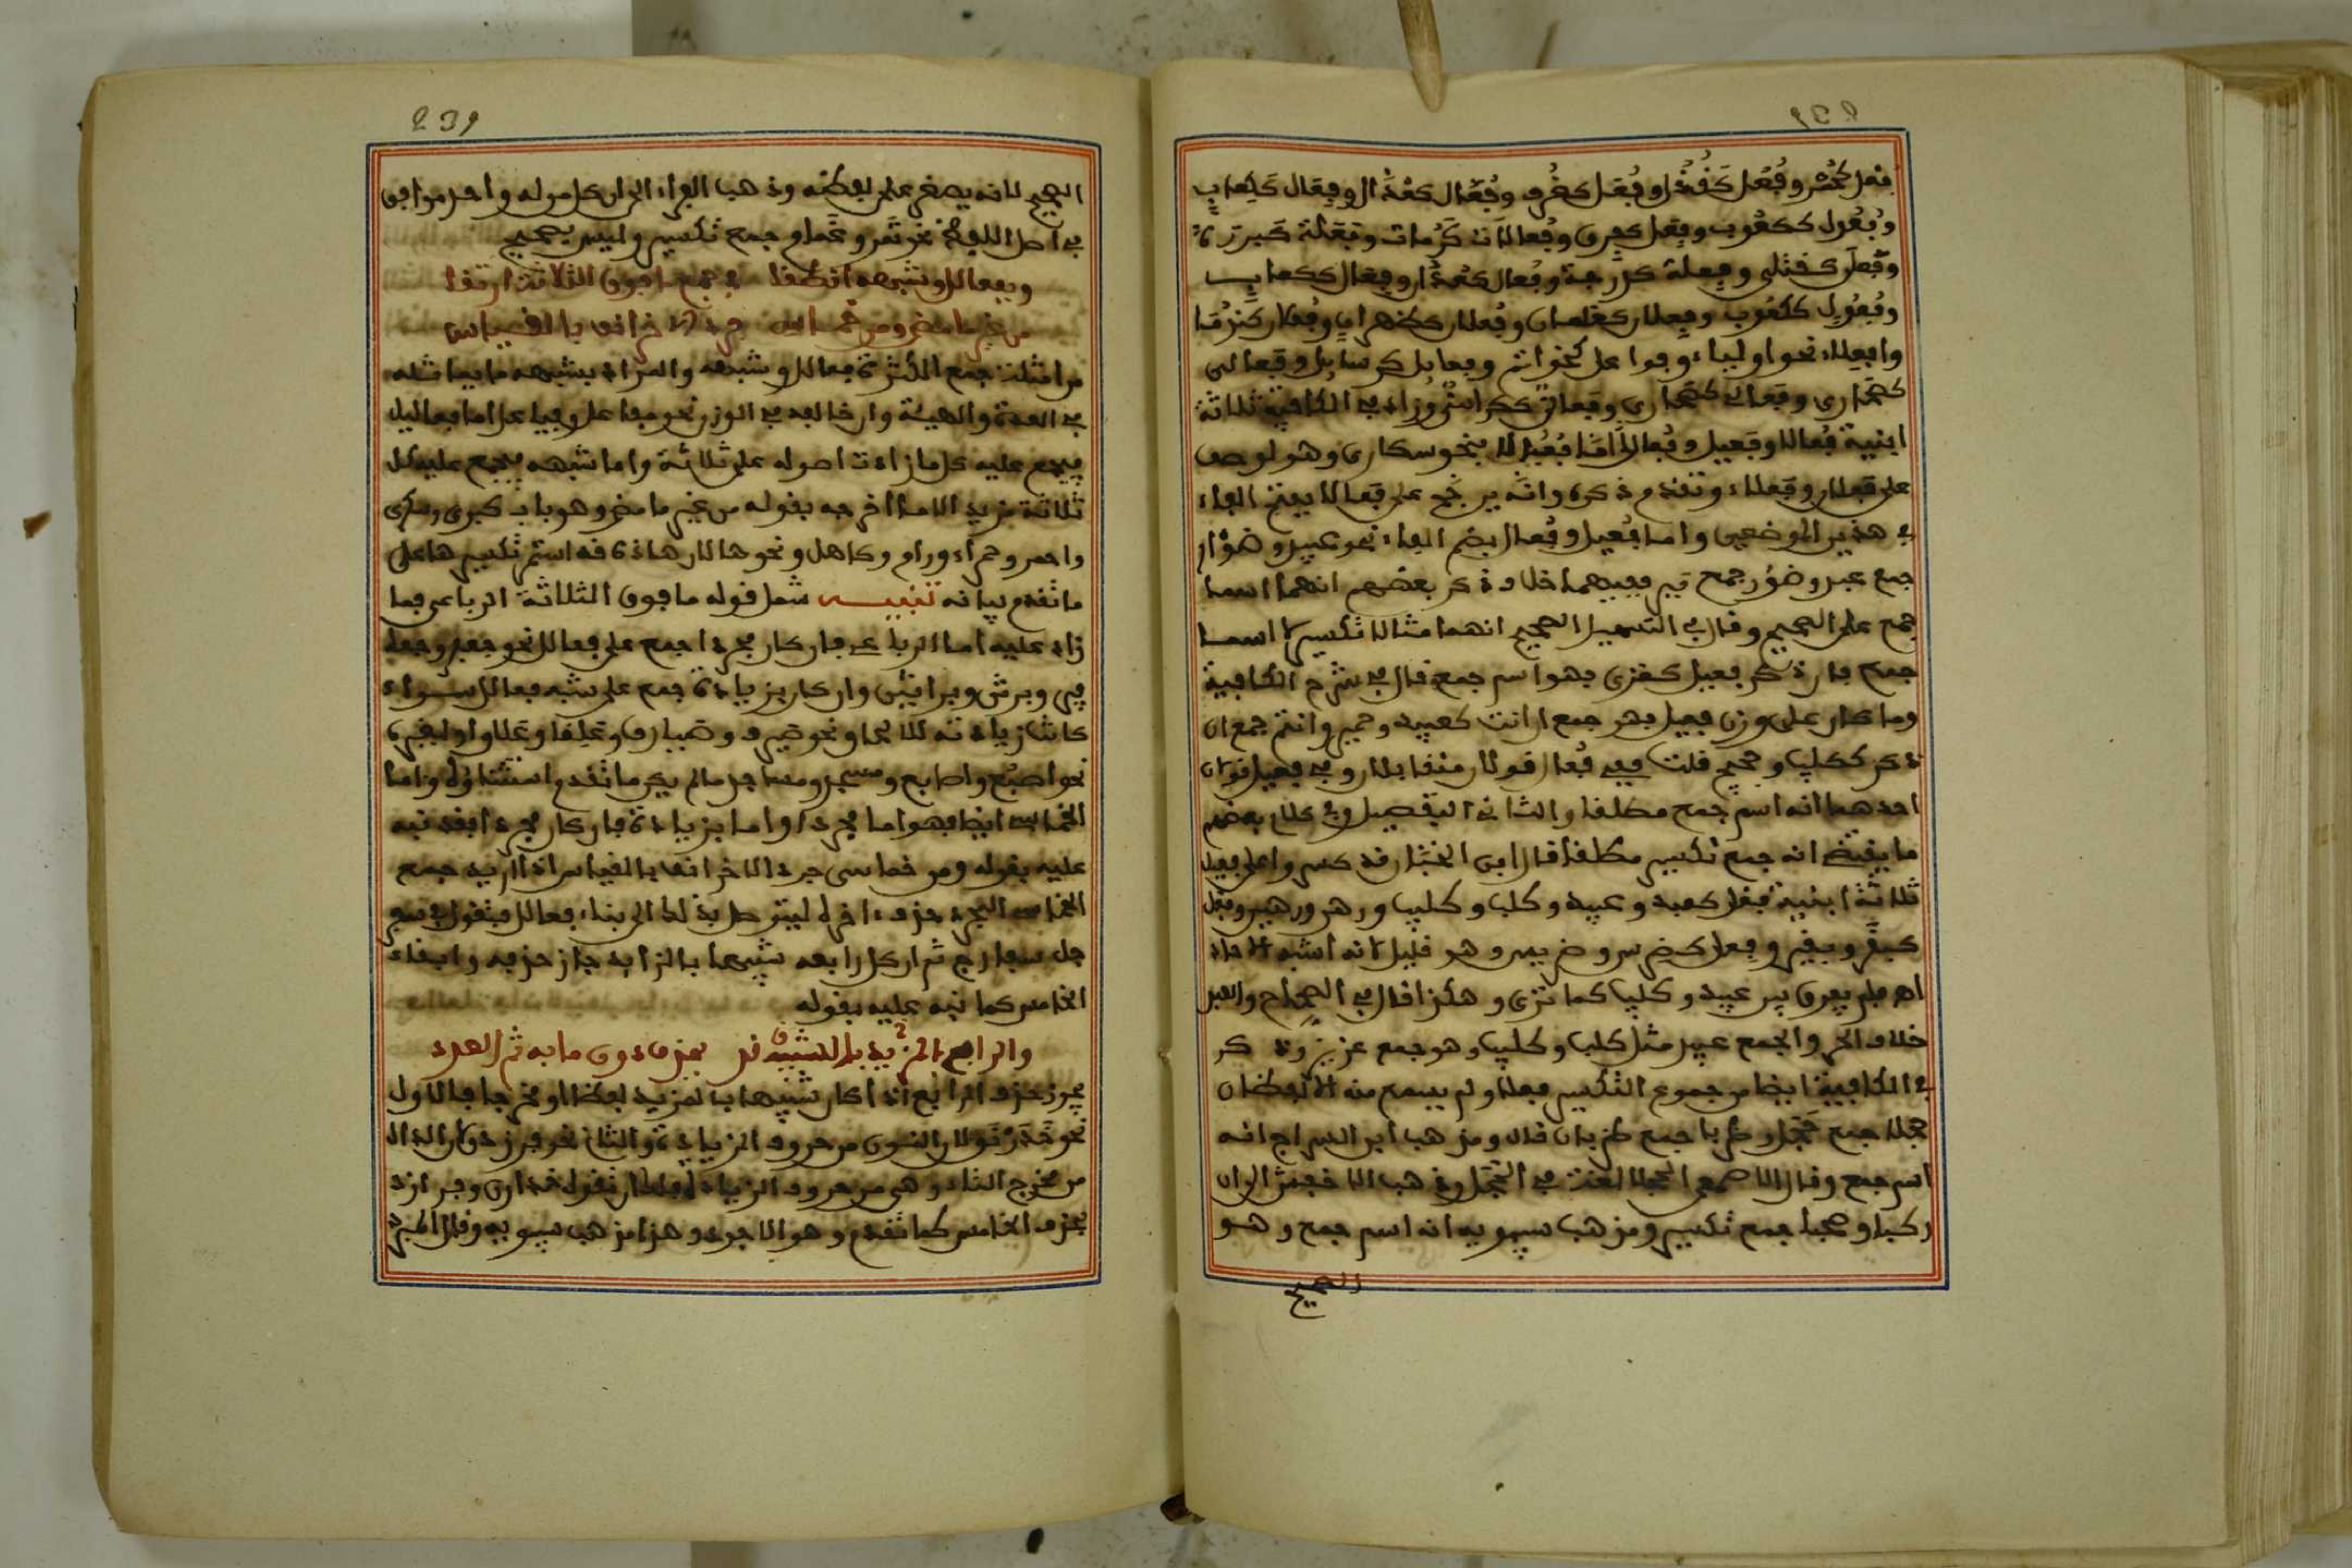 وفعول ككعوب وفعل كفرق وفعالات ككرمات وفعلة كبررة
وفعلى كقتلى وفعلة كدرجة وفعال كعذار وفعال ككعاب
وفعول ككعوب وفعلان كغلمان وفعلان كظهران
وافعلاء نحو اولياء وفواعل كخواتم وفعايل كرسايل وفعالى
كصحارى وفعالي كصحاري وفعالي ككراسي وزاد في الكافية ثلاثة
ابنية فعالى وفعيل وفعال اما فعالى فنحو سكارى وهو لوصف
على فعلان وفعلاء وتقدم ذكره وانه يرجح على فعالى بفتح الفاء
في هذين الموضعين واما فعيل وفعال بضم الفاء نحو عبيد وظؤار
جمع عبد وظئر جمع ففيهما خلاف ذكر بعضهم انهما اسما
جمع على الصحيح وقال في التسهيل الصحيح انهما مثالا تكسير لا اسما
جمع فان ذكر فعيل كغزي فهو اسم جمع قال في شرح الكافية
وما كان على وزن فعيل فهو جمع ان انث كعبيد وحمير واسم جمع ان
ذكر ككليب وحجيج قلت ففي فعال قولان متقابلان وفي فعيل قولان
احدهما انه اسم جمع مطلقا والثاني التفصيل وفي كلام بعضهم
ما يقتضي انه جمع تكسير مطلقا قال ابن الخباز قد كسروا على فعيل
ثلاثة ابنية فعل كعبد وعبيد وكلب وكليب ورهن ورهين وفعل
كبقر وبقير وفعل كضرس وضريس وهو قليل لانه اشبه الاحاد
اه فلم يفرق بين عبيد وكليب كما ترى وهكذا قال في الصحاح والعبد
خلاف الحر والجمع عبيد مثل كلب وكليب وهو جمع عزيز وذكر
في الكافية ايضا من جموع التكسير فعلى ولم يسمع منه الا لفظان
حجلى جمع حجل وظربى جمع ظربان قال ومذهب ابن السراج انه
اسم جمع وقال الاصمعي الحجلى لغة في الحجل وذهب الاخفش الى ان
ركبا وصحبا جمع تكسير ومذهب سيبويه انه اسم جمع وهو
الصحيح
239
الصحيح لانه يصغر على لفظه وذهب الفراء الى ان كل ما له واحد موافق
في اصل اللفظ نحو ثمر وثمار جمع تكسير وليس بصحيح
وبفعالل وشبهه انطقا في جمع ما فوق الثلاثة ارتقى
من غير ما مضى ومن خماسي جرد الاخر انف بالقياس
من امثلة جمع الكثرة فعالل وشبهه والمراد بشبهه ما يماثله
في العدة والهيئة وان خالفه في الوزن نحو مفاعل وفياعل اما فعالل
فيجمع عليه كل ما زادت اصوله على ثلاثة واما شبهه فيجمع عليه كل
ثلاثة مزيد الا ما اخرجه بقوله من غير ما مضى وهو باب كبرى وسكرى
واحمر وحمراء ورام وكامل ونحوها لان هاذه قد استقر تكسيرها على
ما تقدم بيانه تنبيه شمل قوله ما فوق الثلاثة الرباعي فما
زاد عليه اما الرباعي فان كان مجردا جمع على فعالل نحو جعفر وجعا
فر وبرثن وبراثن وان كان بزيادة جمع على شبه فعالل سواء
كانت زيادته للالحاق نحو صيرف وصيارف وعلقى وعلاق او لغيره
نحو اصبع واصابع ومسجد ومساجد ما لم يكن مما تقدم استثناؤه واما
الخماسي ايضا فهو اما مجرد واما بزيادة فان كان مجردا فقد نبه
عليه بقوله ومن خماسي جرد الاخر انف بالقياس اي اذا اريد جمع
الخماسي المجرد حذف اخره ليتوصل بذلك الى بناء فعالل فتقول في سفر
جل سفارج ثم ان كان رابعه شبيها بالزايد جاز حذفه وابقاء
الخامس كما نبه عليه بقوله
والرابع الشبيه بالمزيد قد يحذف دون ما به تم العدد
يجوز حذف الرابع اذا كان شبيها بالمزيد لفظا او مخرجا فالاول
نحو خدرنق لان النون من حروف الزيادة والثاني نحو فرزدق لان الدال
من مخرج التاء وهي من حروف الزيادة فتقول خدارق وفرازق
بحذف الخامس كما تقدم وهو الاجود وهذا مذهب سيبويه وقال المبرد